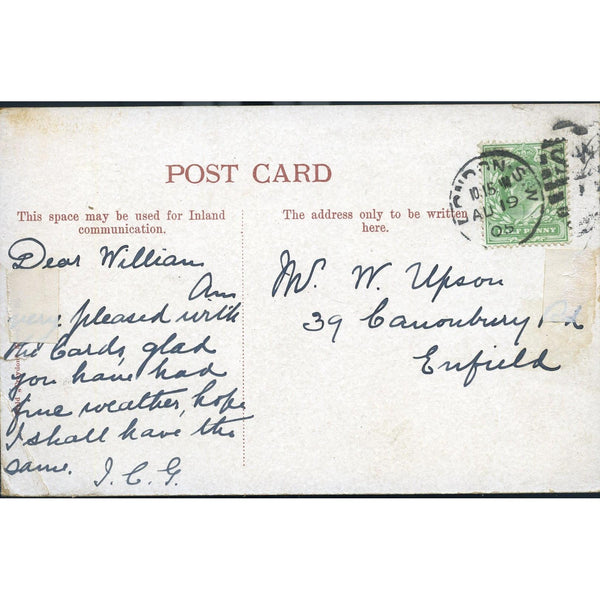 POST CARD
This space may be used for Inland
communication.
The address only to be written
here.
LONDON S.W
10.15
AU 19
05
HALFPENNY
Dear William
Am
very pleased with
the Cards, glad
you have had
fine weather, hope
I shall have the
same. J.C.G.
Mr. W. Upson
39 Canonbury Rd
Enfield